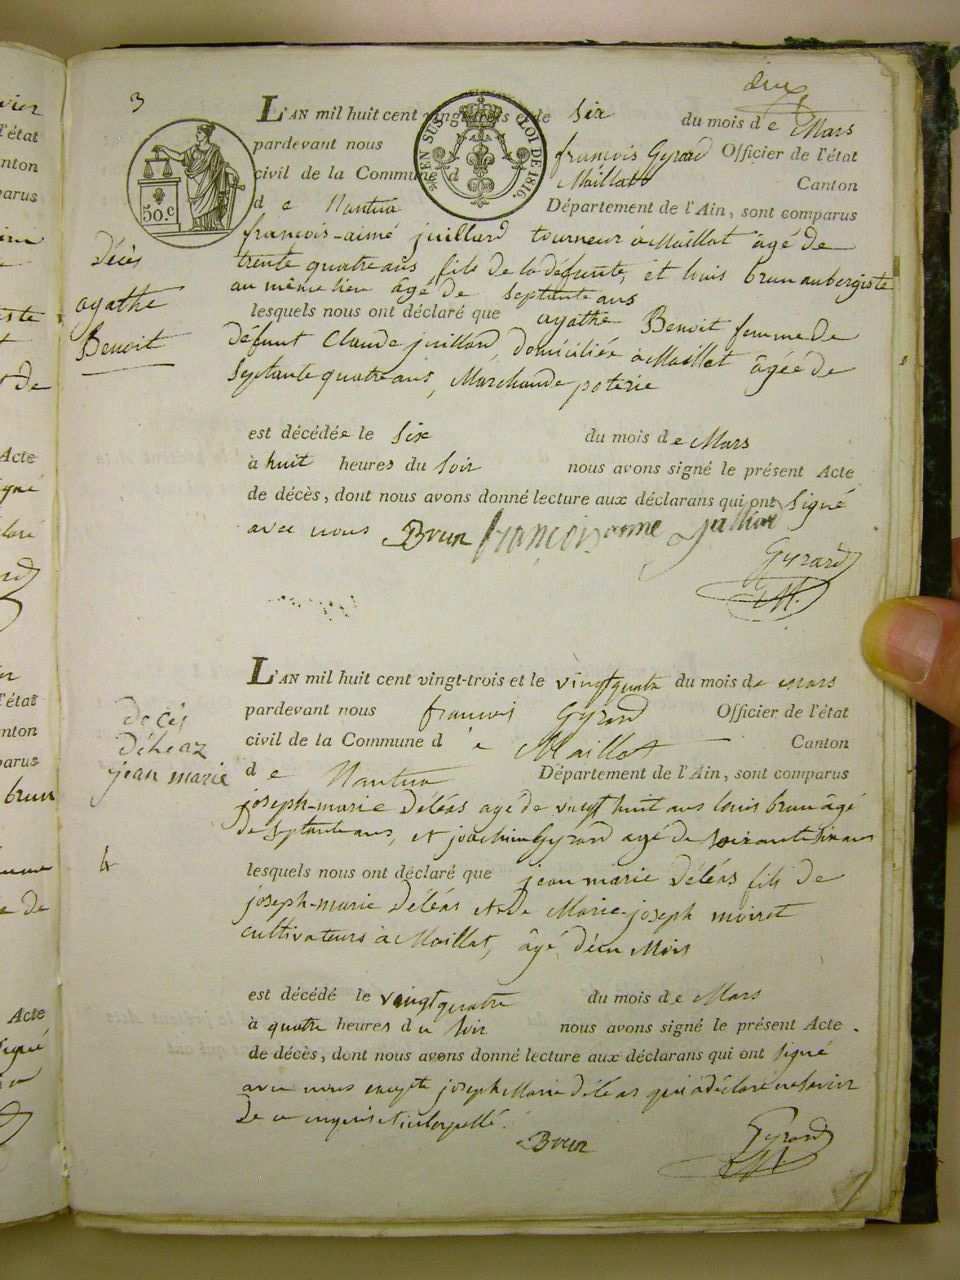 deux
3
L'AN mil huit cent vingt-trois et le Six du mois de Mars
pardevant nous françois Gyrard Officier de l'état
civil de la Commune d Maillat Canton
d e Nantua Département de l'Ain, sont comparus
EN SUS LOI DE 1816.
50.c
françois-aimé juillard tourneur à Maillat âgé de
trente quatre ans fils de la défunte, et louis brun aubergiste
au même lieu âgé de Septante ans
lesquels nous ont déclaré que agathe Benoit femme de
défunt Claude juillard, domiciliée à Maillat âgée de
Septante quatre ans, Marchande poterie
Décès
agathe
Benoit
est décédée le Six du mois de Mars
à huit heures du Soir nous avons signé le présent Acte
de décès, dont nous avons donné lecture aux déclarans qui ont Signé
avec nous Brun françois aimé Juillard
Gyrard
M.
L'AN mil huit cent vingt-trois et le vingt quatre du mois de mars
pardevant nous francois Gyrard Officier de l'état
civil de la Commune d e Maillat Canton
d e Nantua Département de l'Ain, sont comparus
décès
déléaz
jean marie
joseph-marie Déléas agé de vingt huit ans louis brun âgé
de Septante ans, et joachim Gyrard agé de soixante six ans
4
lesquels nous ont déclaré que jean marie Déléas fils de
joseph-marie Déléas et de Marie-joseph moiret
cultivateurs à Maillat, âgé d'un Mois
est décédé le vingt quatre du mois de Mars
à quatre heures du Soir nous avons signé le présent Acte
de décès, dont nous avons donné lecture aux déclarans qui ont signé
avec nous excepté joseph Marie déléas qui a déclaré ne savoir
de ce enquis et interpellé.
Brun
Gyrard
M